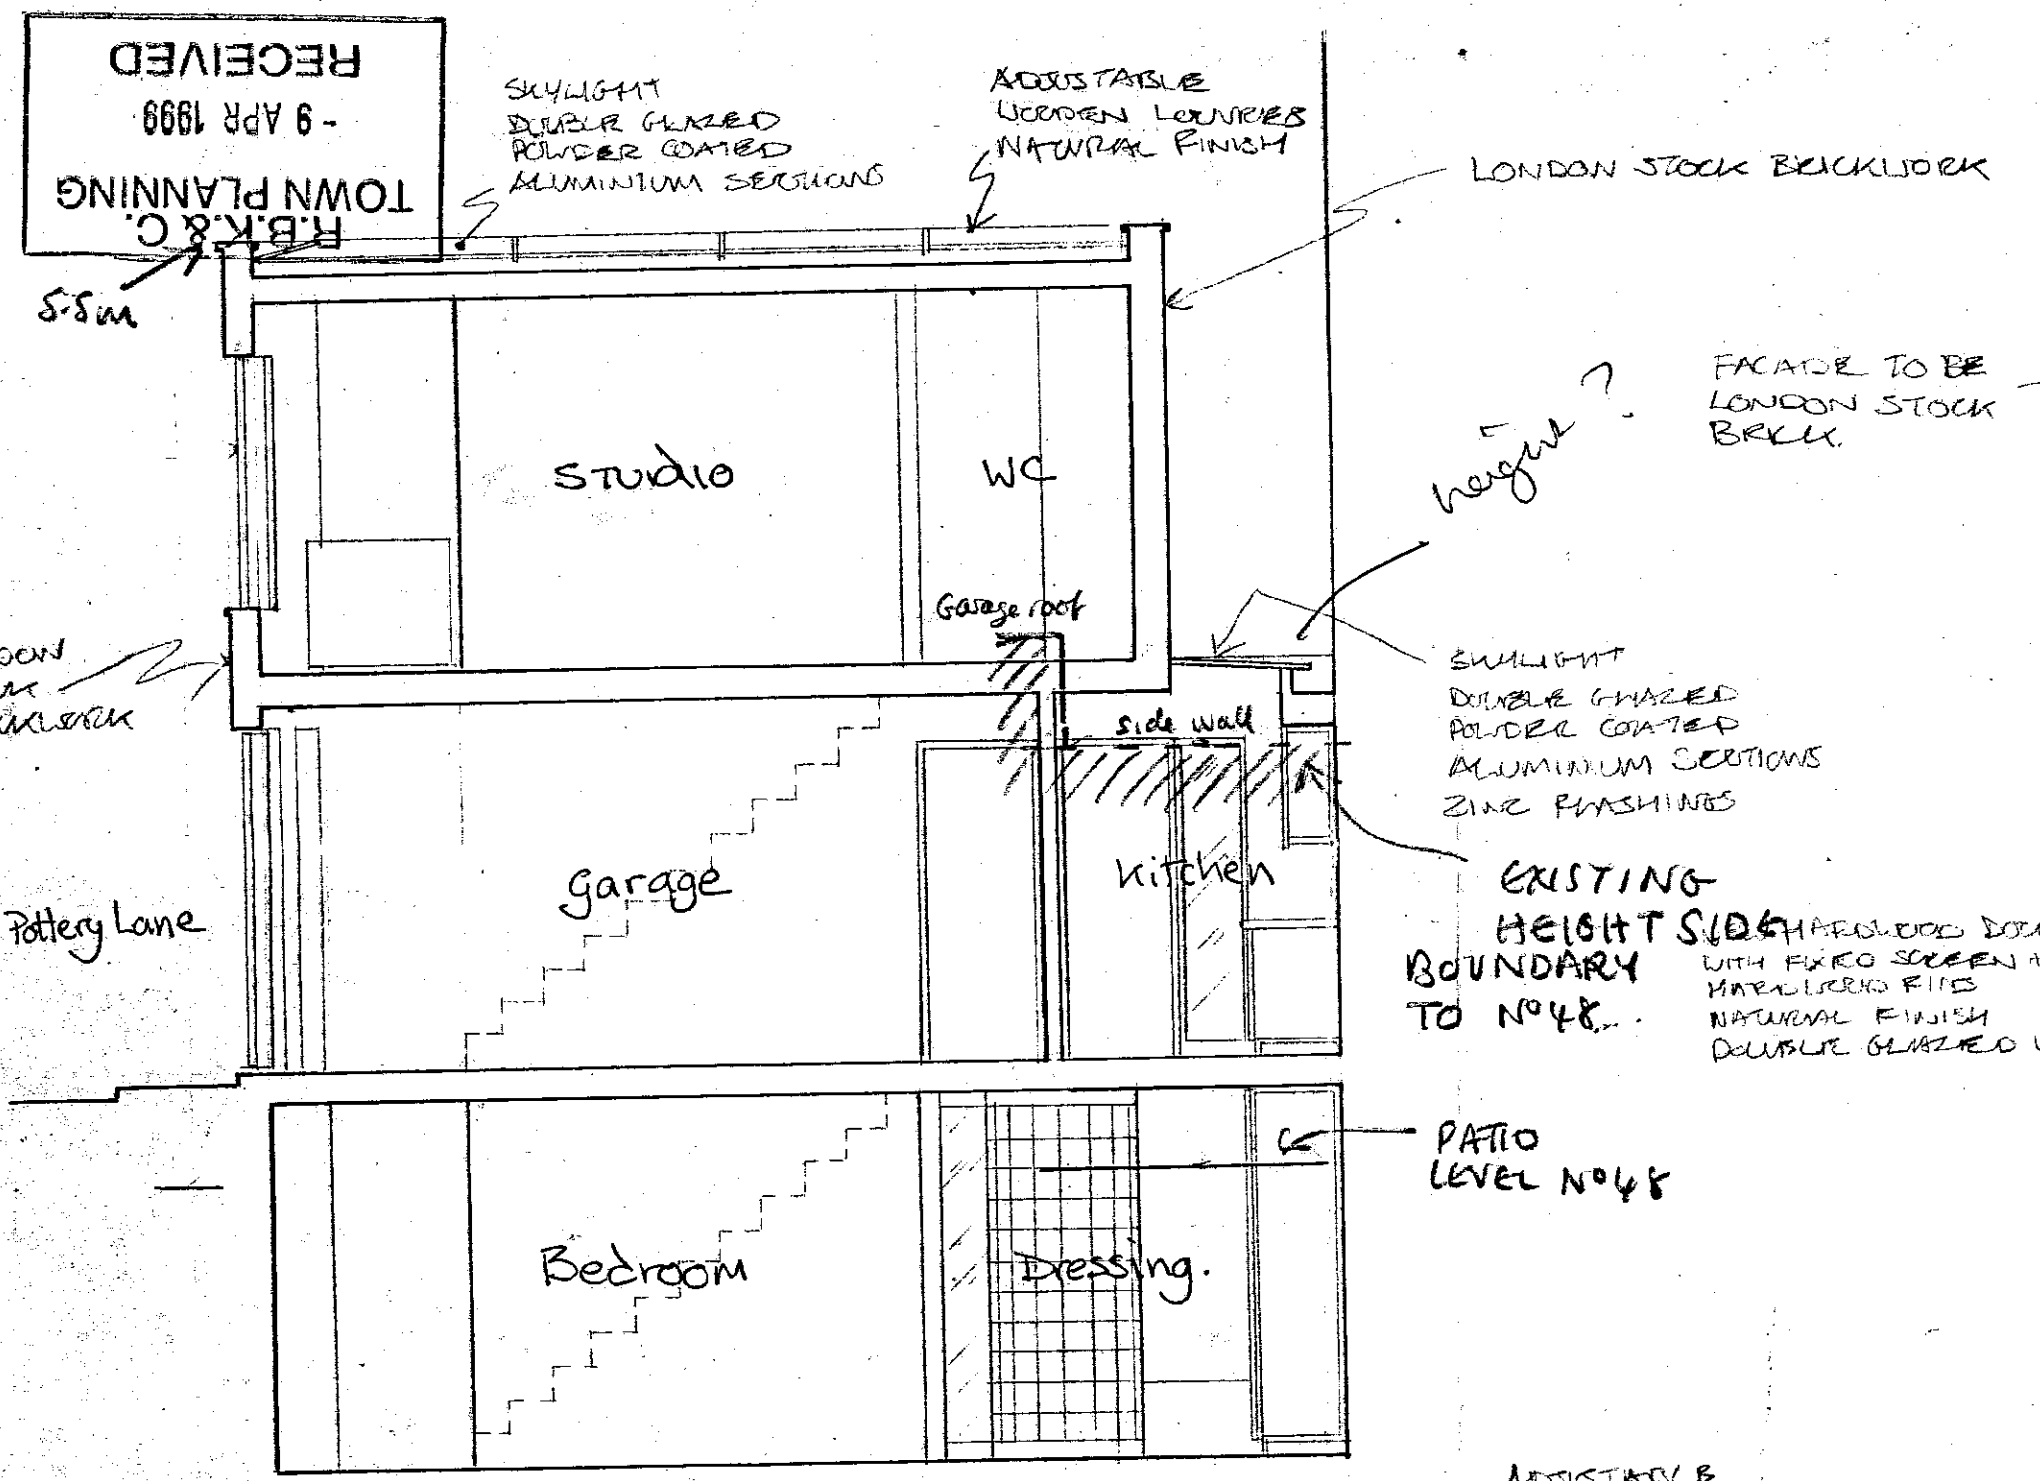 R.B.K.& C.
TOWN PLANNING
- 9 APR 1999
RECEIVED
SKYLIGHT
DOUBLE GLAZED
POWDER COATED
ALUMINIUM SECTIONS
ADJUSTABLE
WOODEN LOUVRES
NATURAL FINISH
LONDON STOCK BRICKWORK
5.5m
FACADE TO BE
LONDON STOCK
BRICK.
height ?
STUdIO
WC
Garage roof
side wall
SKYLIGHT
DOUBLE GLAZED
POWDER COATED
ALUMINIUM SECTIONS
ZINC FLASHINGS
Garage
Kitchen
Pottery Lane
EXISTING
HEIGHT SIDE
BOUNDARY
TO Nº48..
HARDWOOD
WITH FIXED SCREEN
NATURAL FINISH
DOUBLE GLAZED
PATIO
LEVEL Nº48
Bedroom
Dressing.